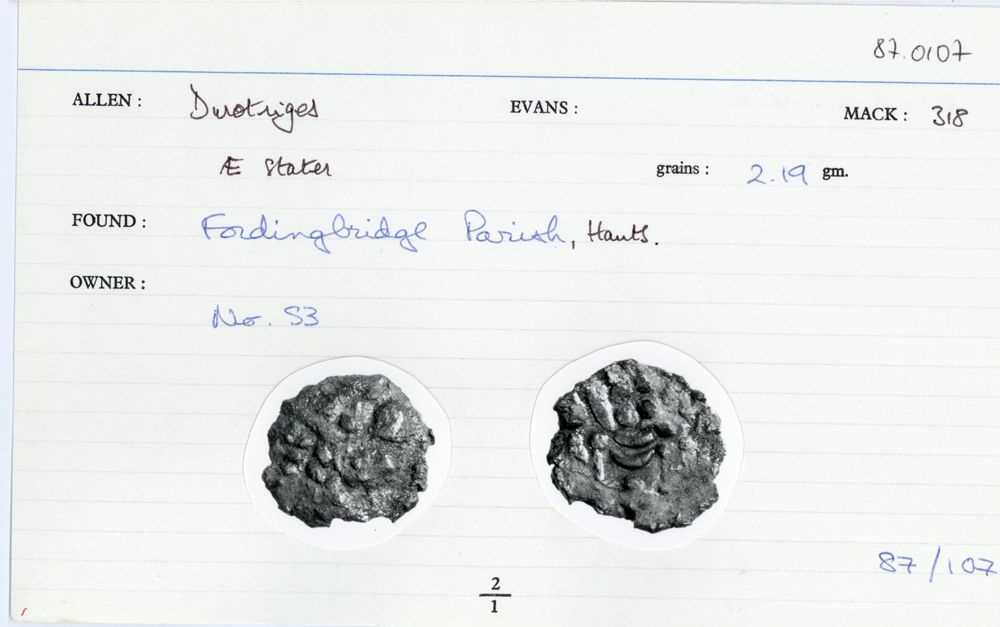 87.0107
ALLEN : Durotriges EVANS : MACK : 318
Æ Stater grains : 2.19 gm.
FOUND : Fordingbridge Parish, Hants.
OWNER :
No. S3
87/107
2
1